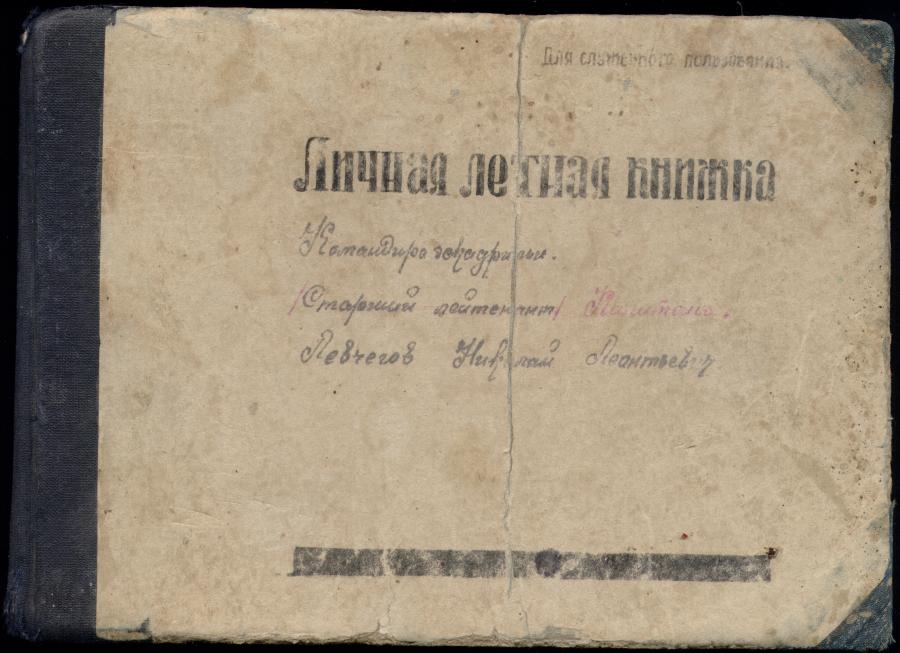 Для служебного пользования.
Личная летная книжка
Командира эскадрильи.
/Старший лейтенант/ Капитана.
Левчегов Николай Леантьевич